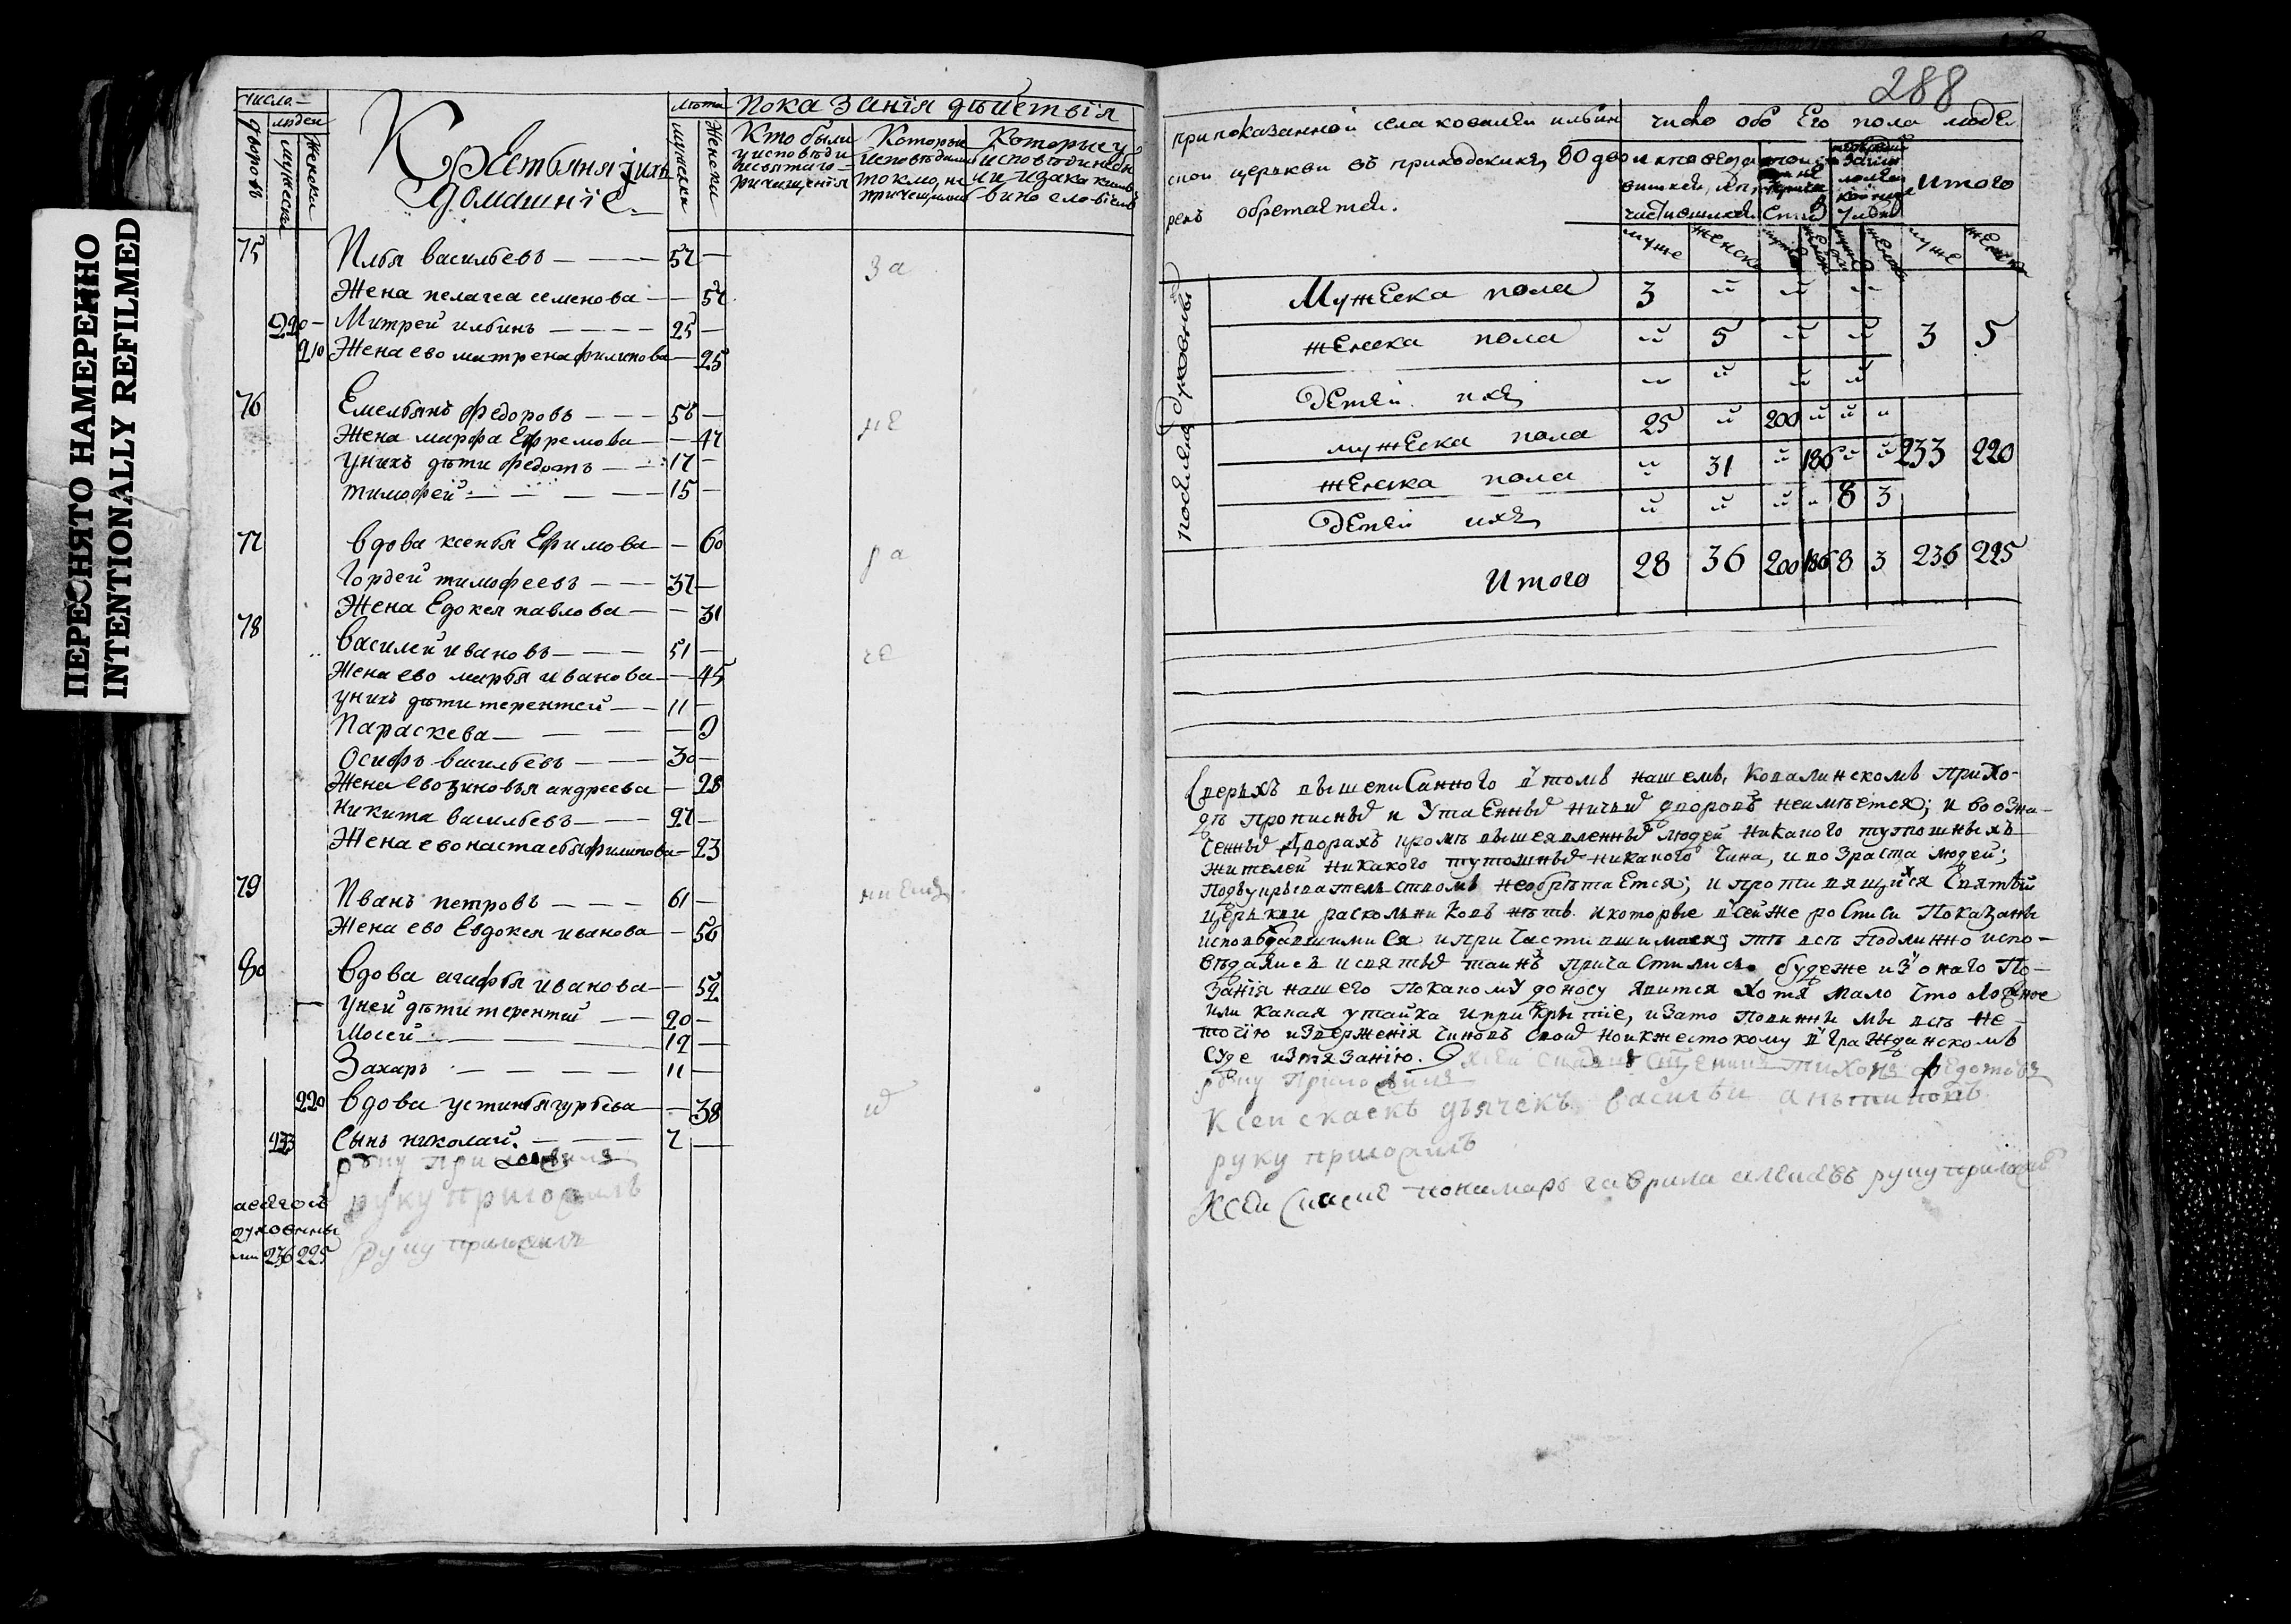 ПЕРЕСНЯТО НАМЕРЕННО
INTENTIONALLY REFILMED
число
дворовъ
людеи
мужеска
женски
Крестьяня їихъ
домашнїе
лѣта
мужски
женски
показанїя дѣиствїя
Кто были
у исповѣди
и святаго
причищения
Которые
исповѣдались
токмо, не
причещились
Которые у
исповѣди не были
75 Илья васильевъ 57
за
Жена пелагеа семенова 57
220 Митрей ильинъ 25
210 Жена ево матрена филипова 25
76 Емельянъ федоровъ 56
не
Жена марфа Ефремова 47
у нихъ дѣти федотъ 17
тимофей 15
77 вдова ксенья Ефимова 60
ра
Гордеи тимофеевъ 37
Жена Едокея павлова 31
78 василеи ивановъ 51
че
Жена ево марья иванова 45
у нихъ дѣти терентей 11
Параскева 9
Осифъ васильевъ 30
Жена ево зиновья андреева 28
никита васильевъ 27
Жена ево настасья филипова 23
79 Иванъ петровъ 61
ниемъ
Жена ево Евдокея иванова 56
80 вдова агафья иванова 52
у ней дѣти терентий 20
Мосей 12
Захаръ 11
220 вдова устинья гурьева 38
233 Сынъ николай 7
руку приложилъ
руку приложилъ
руку приложилъ
духовными
236 225
288
При показанной села ковалеи ильин
ской церькви въ приходскихъ 80 дво
рехъ обретается.
число обоего пола людеи
Итого
муже женска муже женска
духовны
Мужеска пола 3
женска пола 5 3 5
Детеи ихъ
посяляня
мужеска пола 25 200
женска пола 31 186 233 220
Детеи ихъ 8 3
Итого 28 36 200 186 8 3 236 225
Сверьхъ вышеписанного в томъ нашемъ Ковалинскомъ прихо-
дѣ прописныхъ и утаенныхъ ничьихъ дворовъ неимѣется; и во озна-
ченныхъ дворахъ кромѣ вышеявленныхъ людей никакого тутошныхъ
жителей никакого тутошныхъ никакого чина, и возраста людей;
подъ укрывателствомъ необрѣтается; и противящихся святѣй
церькви раскольниковъ нѣтъ. и которые в сей же росписи показаны
исповѣдавшимися и причастившимися, тѣ всѣ подлинно испо-
вѣдались и святыхъ таинъ причастились. будеже из онаго По-
занїя нашего по какому доносу явится хотя мало что ложное
или какая утайка и прикрытїе, и за то повинны мы всѣ не-
точїю изверженїя чиновъ своихъ но и жестокому в гражданскомъ
суде истязанїю. тихонъ федотовъ
руку приложилъ
К сей скаскѣ дьячекъ васильи антиповъ
руку приложилъ
К сеи пономарь гаврила алексѣевъ руку приложилъ